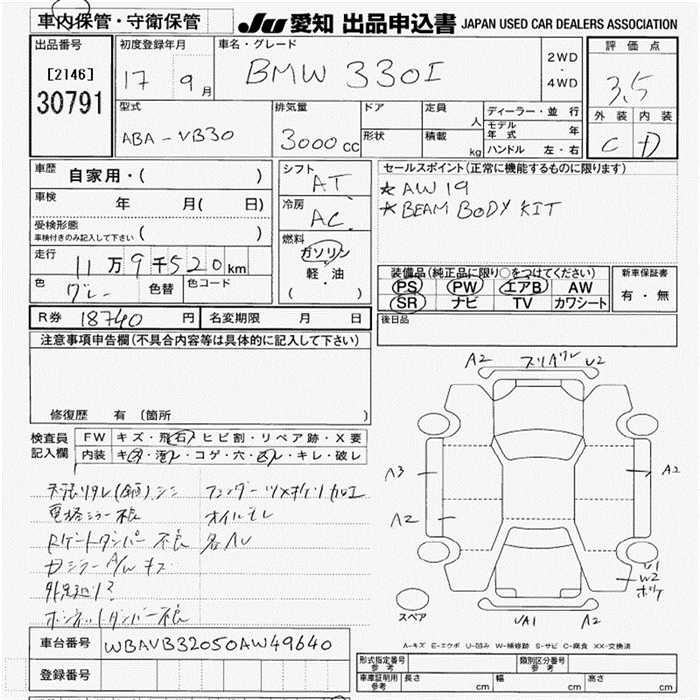 車内保管・守衛保管
JU 愛知 出品申込書 JAPAN USED CAR DEALERS ASSOCIATION
出品番号
[2146]
30791
初度登録年月
17 9月
車名・グレード
BMW 330I
2WD
・
4WD
評価点
3.5
外装 内装
C D
型式
ABA-VB30
排気量
3000cc
ドア
形状
定員
人
積載
kg
ディーラー・並行
モデル年式 年
ハンドル 左・右
車歴
自家用・( )
車検
年 月( 日)
受検形態
車検付きのみ記入して下さい ( )
走行
11万9千520km
色
グレー
色替
色コード
シフト
AT
冷房
AC
燃料
ガソリン
軽・油
( )
セールスポイント(正常に機能するものに限ります)
★AW 19
★BEAM BODY KIT
装備品(純正品に限り○をつけてください)
PS PW エアB AW
SR ナビ TV カワシート
新車保証書
有・無
R券 18740 円
名変期限 月 日
後日品
注意事項申告欄(不具合内容等は具体的に記入して下さい)
修復歴 有(箇所 )
検査員記入欄
FW キズ・飛石・ヒビ割・リペア跡・X要
内装 キズ・汚レ・コゲ・穴・凶レ・キレ・破レ
電格ミラー不良 オイルモレ
ボンネットダンパー不良
A2 U2
A3
A2
A2
U1
W2
スペア
UA1 A2
A-キズ E-エクボ U-凹み W-補修跡 S-サビ C-腐食 XX-交換済
車台番号 WBAVB32050AW49640
登録番号
形式指定番号 参考
類別区分番号 参考
車庫証明用 参考 長さ cm 幅 cm 高さ cm